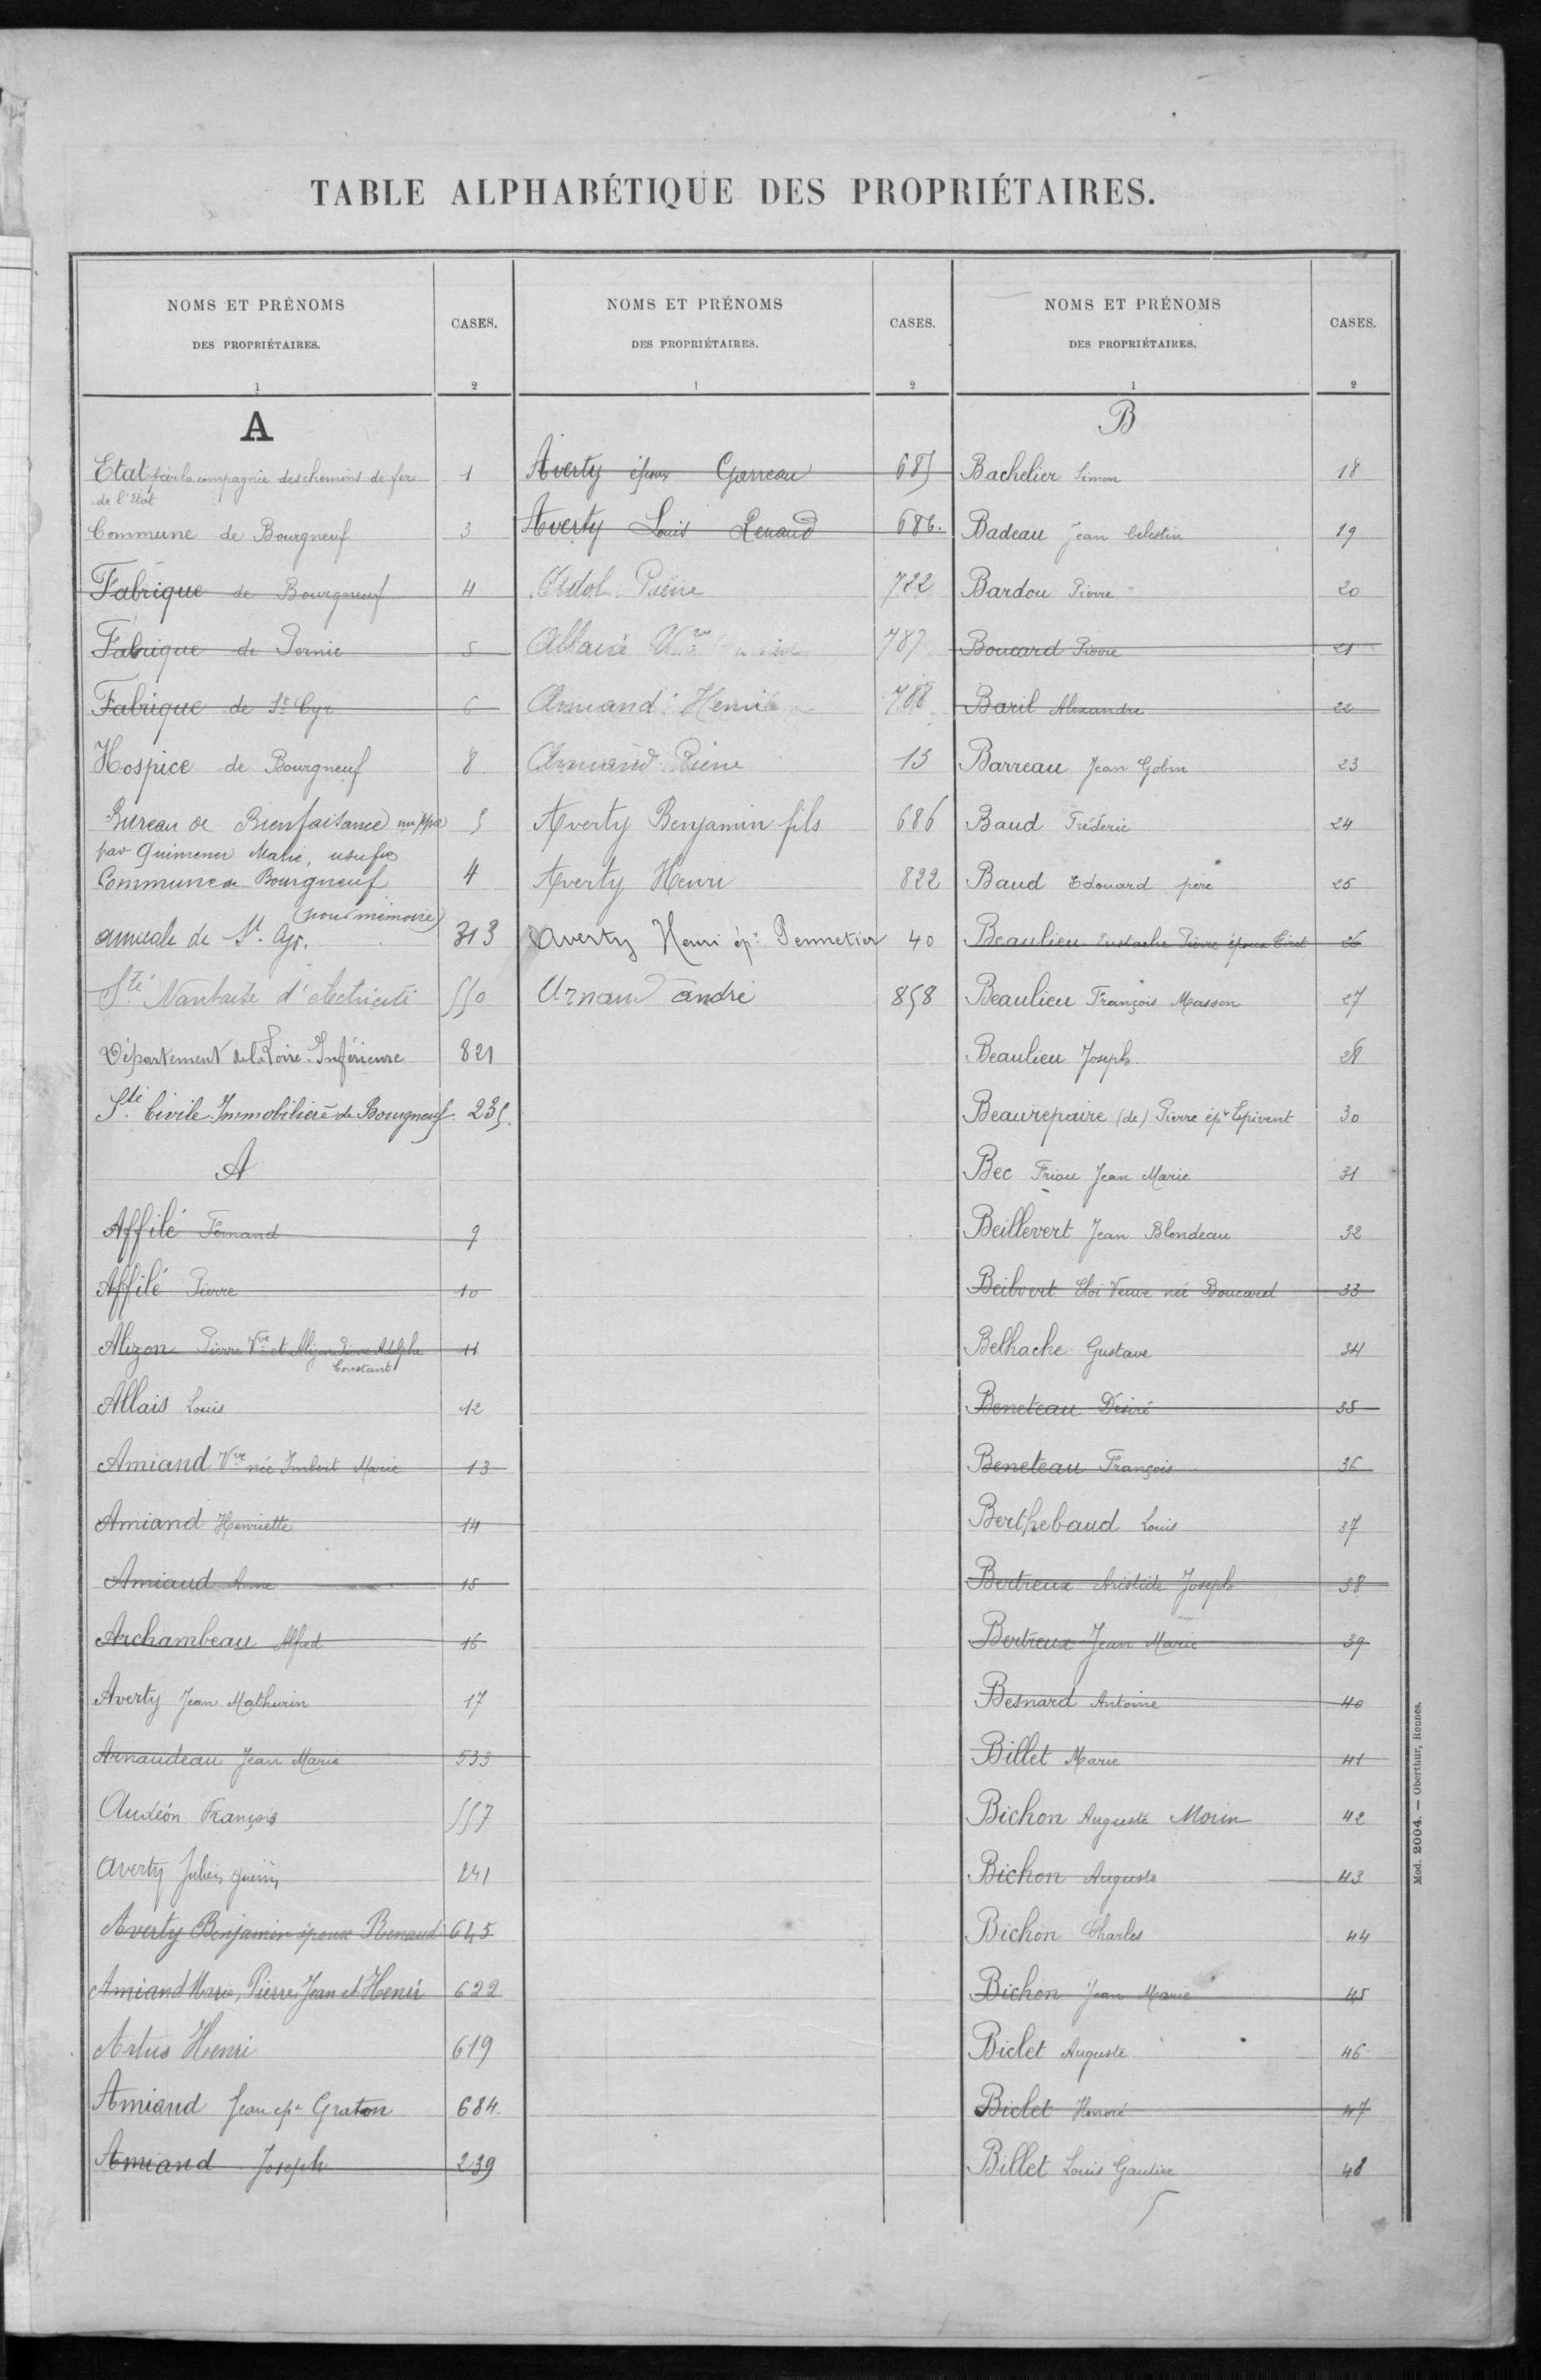 TABLE ALPHABÉTIQUE DES PROPRIÉTAIRES.
NOMS ET PRÉNOMS
DES PROPRIÉTAIRES.
CASES.
1
2
A
Etat par la compagnie des chemins de fer 1
de l'Etat
Commune de Bourgneuf 3
Fabrique de Bourgneuf 4
Fabrique de Pornic 5
Fabrique de St Cyr 6
Hospice de Bourgneuf 8
Bureau de Bienfaisance 5
par Quimener Marie, usufre
Commune de Bourgneuf 4
(pour mémoire)
amicale de St. Cyr. 313
Sté Nantaise d'électricité 550
Département de la Loire-Inférieure 821
Sté Civile Immobilière de Bourgneuf 235.
A
Affilé Fernand 9
Affilé Pierre 10
Alizon Pierre Vve et Alizon Pierre Adolphe 11
Constant
Allais Louis 12
Amiand Vve née Imbert Marie 13
Amiand Henriette 14
Amiaud Anne 15
Archambeau Alfred 16
Averty Jean Mathurin 17
Arnaudeau Jean Marie 533
Audéon François 557
Averty Julien Guérin 241
Averty Benjamin époux Renaud 645
Amiand Marie, Pierre, Jean et Henri 622
Artus Henri 619
Amiand Jean epx Graton 684
Amiand Joseph 239
NOMS ET PRÉNOMS
DES PROPRIÉTAIRES.
CASES.
1
2
Averty époux Garreau 685
Averty Louis Renaud 686.
Pierre 722
787
Armand Henri 788
Armand Pierre 13
Averty Benjamin fils 686
Averty Henri 822
Averty Henri épx Pennetier 40
Arnaud André 858
NOMS ET PRÉNOMS
DES PROPRIÉTAIRES.
CASES.
1
2
B
Bachelier Simon 18
Badeau Jean Celestin 19
Bardou Pierre 20
Boucard Pierre 21
Baril Alexandre 22
Barreau Jean Gobin 23
Baud Fréderic 24
Baud Edouard père 25
Beaulieu Eustache Pierre époux 26
Beaulieu François Masson 27
Beaulieu Joseph 28
Beaurepaire (de) Pierre épx Epivent 30
Bec Friou Jean Marie 31
Beillevert Jean Blondeau 32
Beilvert Eloi Veuve née Boucard 33
Belhache Gustave 34
Beneteau Desiré 35
Beneteau François 36
Berthebaud Louis 37
Bertreux Aristide Joseph 38
Bertreux Jean Marie 39
Besnard Antoine 40
Billet Marie 41
Bichon Auguste Morin 42
Bichon Auguste 43
Bichon Charles 44
Bichon Jean Marie 45
Biclet Auguste 46
Biclet Honoré 47
Billet Louis Gautier 48
Mod. 2004. — Oberthur, Rennes.